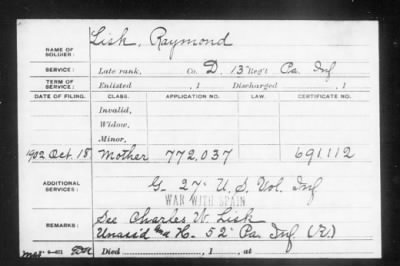 NAME OF SOLDIER: Lisk, Raymond
SERVICE: Late rank, Co. D, 13" Reg't Pa. Inf
TERM OF SERVICE: Enlisted , 1 Discharged , 1
DATE OF FILING. CLASS. APPLICATION NO. LAW. CERTIFICATE NO.
Invalid,
Widow,
Minor,
1902 Oct. 18 Mother 772,037 691112
ADDITIONAL SERVICES: G. 27" U.S. Vol. Inf
WAR WITH SPAIN
REMARKS: See Charles W. Lisk
Unass'd H. 52" Pa. Inf
Died , 1 , at